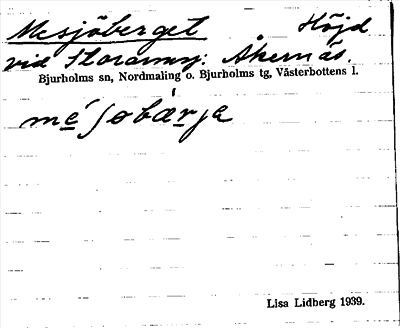 Mesjöberget Höjd
vid Storarmsj. Åkernäs.
Bjurholms sn, Nordmaling o. Bjurholms tg, Västerbottens l.
Lisa Lidberg 1939.